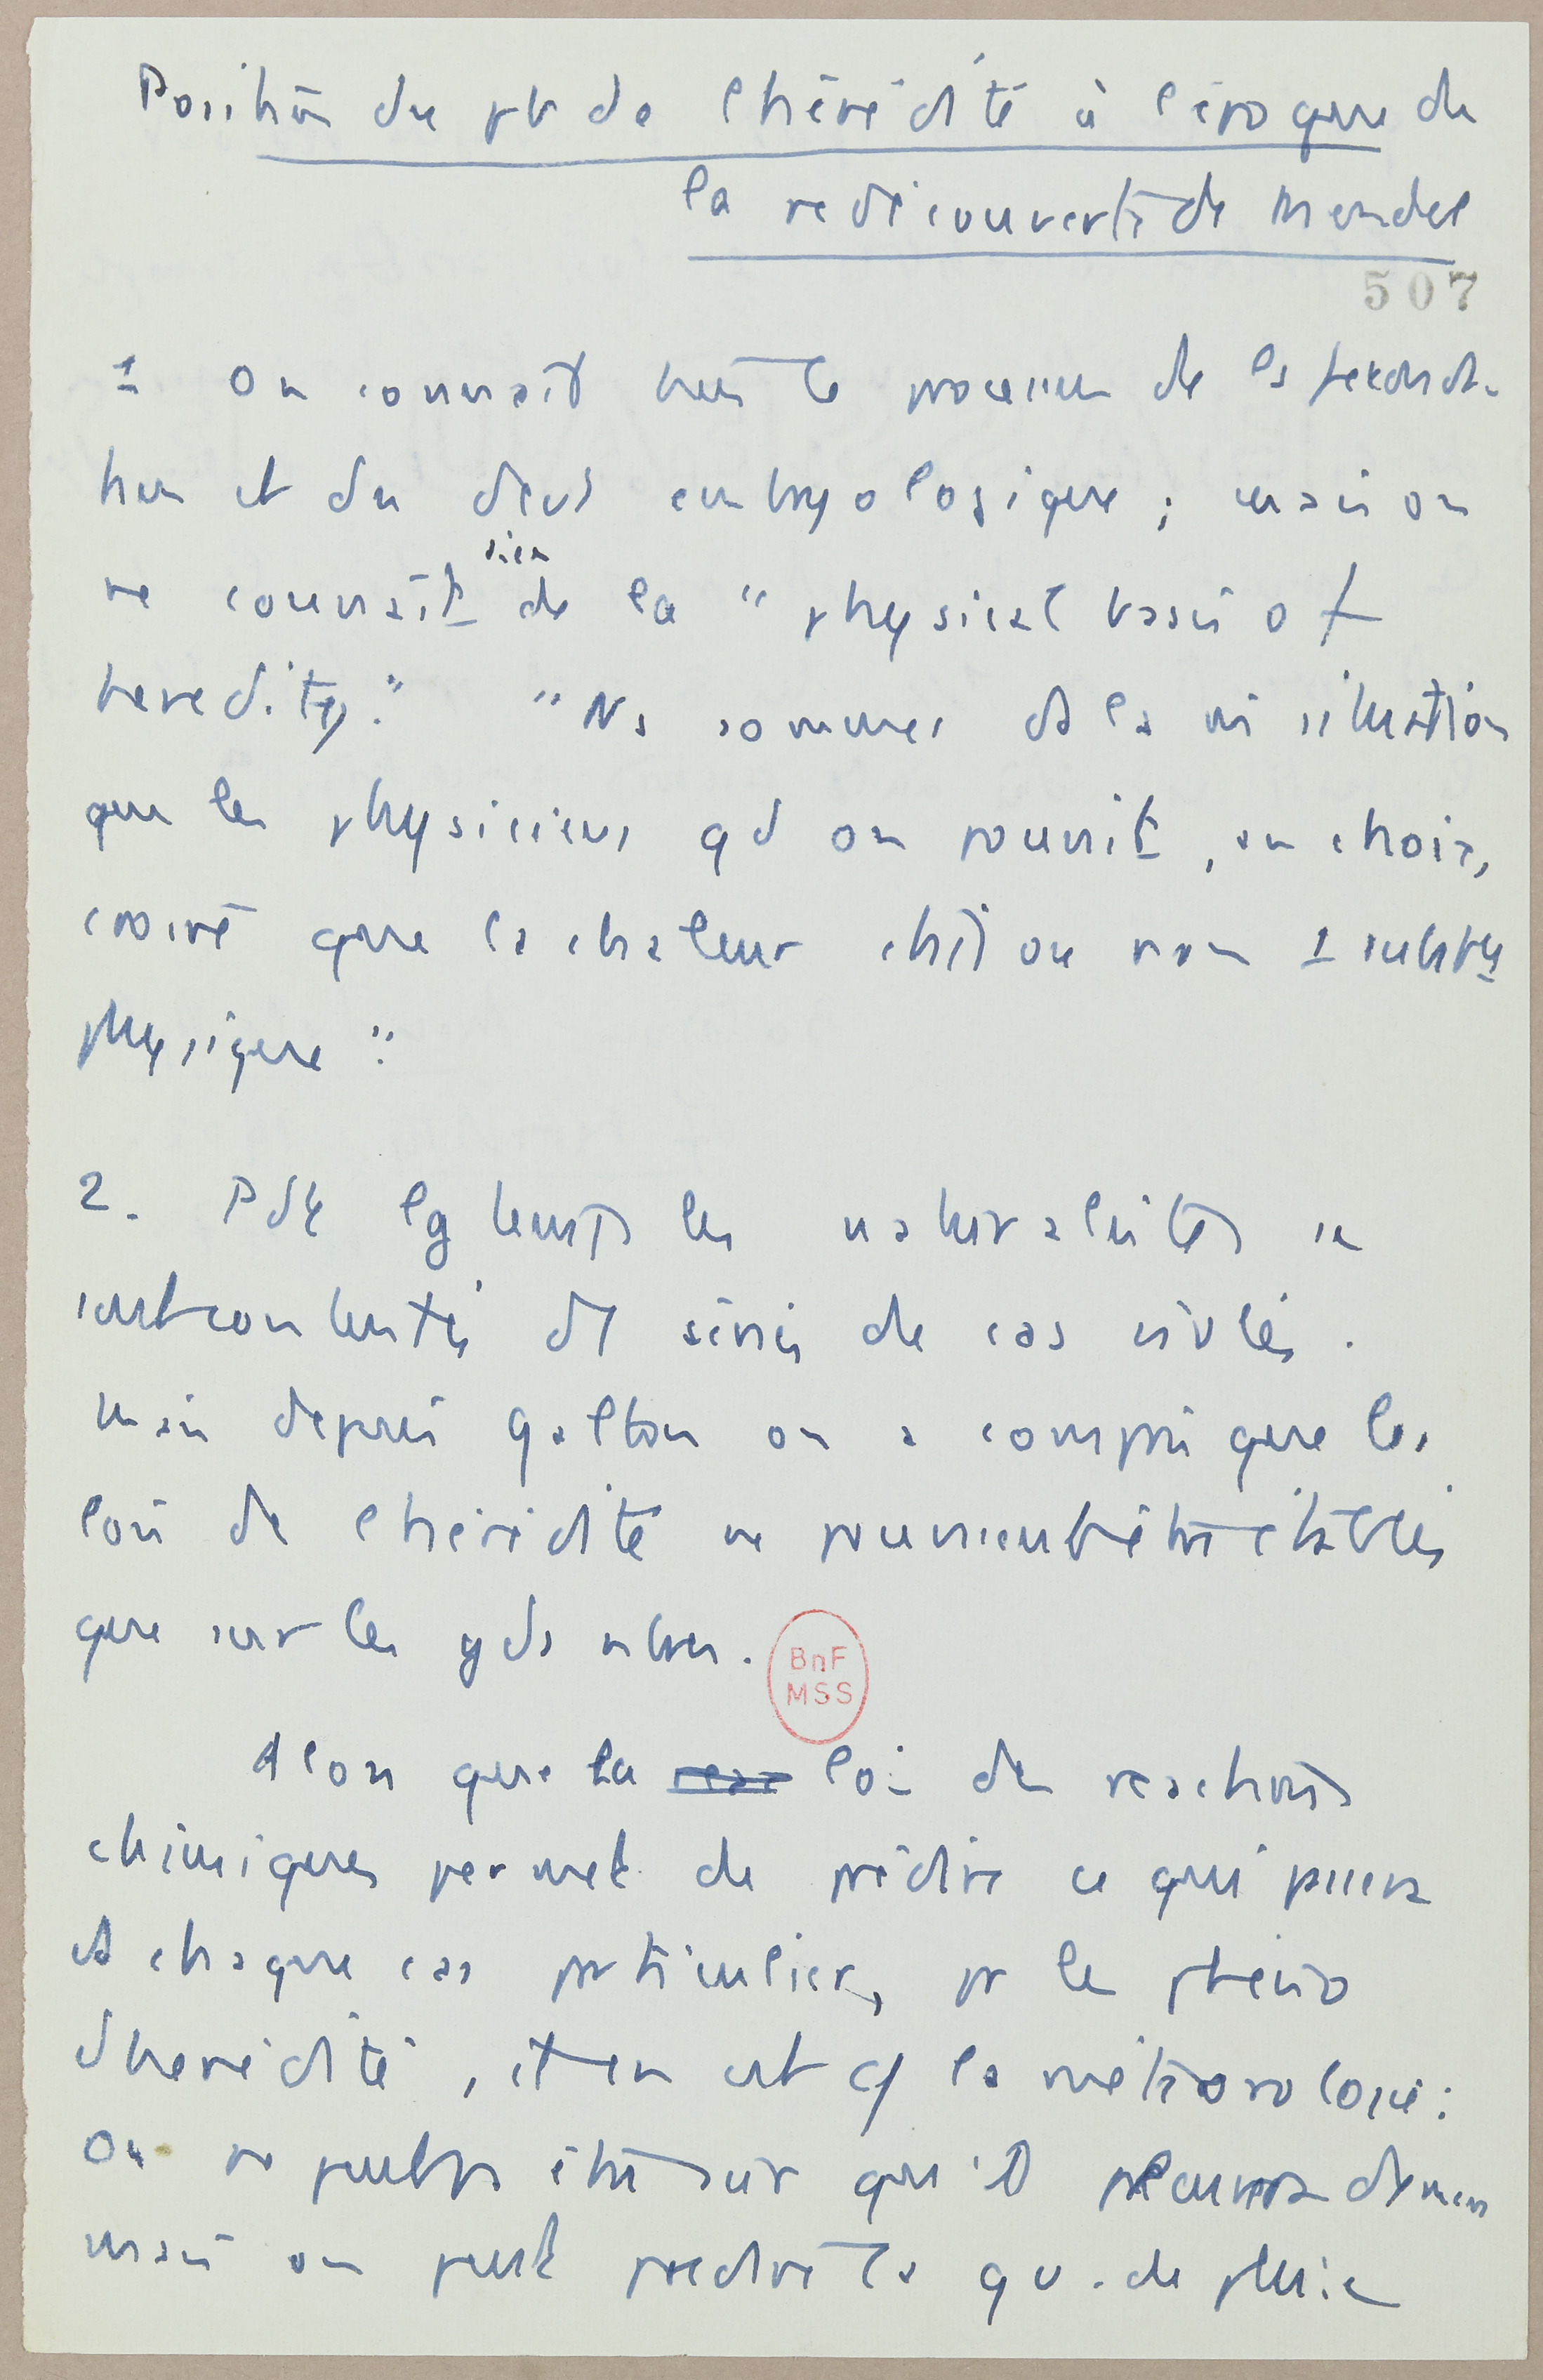 Position du pb de l'hérédité à l'époque de
la redécouverte de Mendel
507
1 On connaît bien le processus de la féconda-
tion et du devt embryologique ; mais on
ne connaît rien de la "physical basis of
heredity." "Ns sommes ds la m situation
que les physiciens qd on pouvait, au choix,
croire que la chaleur était ou non 1 substce
physique".
2. Pdt lg temps les naturalistes se
sont contentés de séries de cas isolés.
Mais depuis Galton on a compris que les
lois de l'hérédité ne pouvaient être établies
que sur les gds nbres.
BnF
MSS
Alors que la loi des reactions
chimiques permet de prédire ce qui passera
ds chaque cas particulier, pr les phéno
d'hérédité, il en est cf la météorologie :
On ne peut pas être sûr qu'il pleuvra demain
mais on peut predire la qu. de pluie